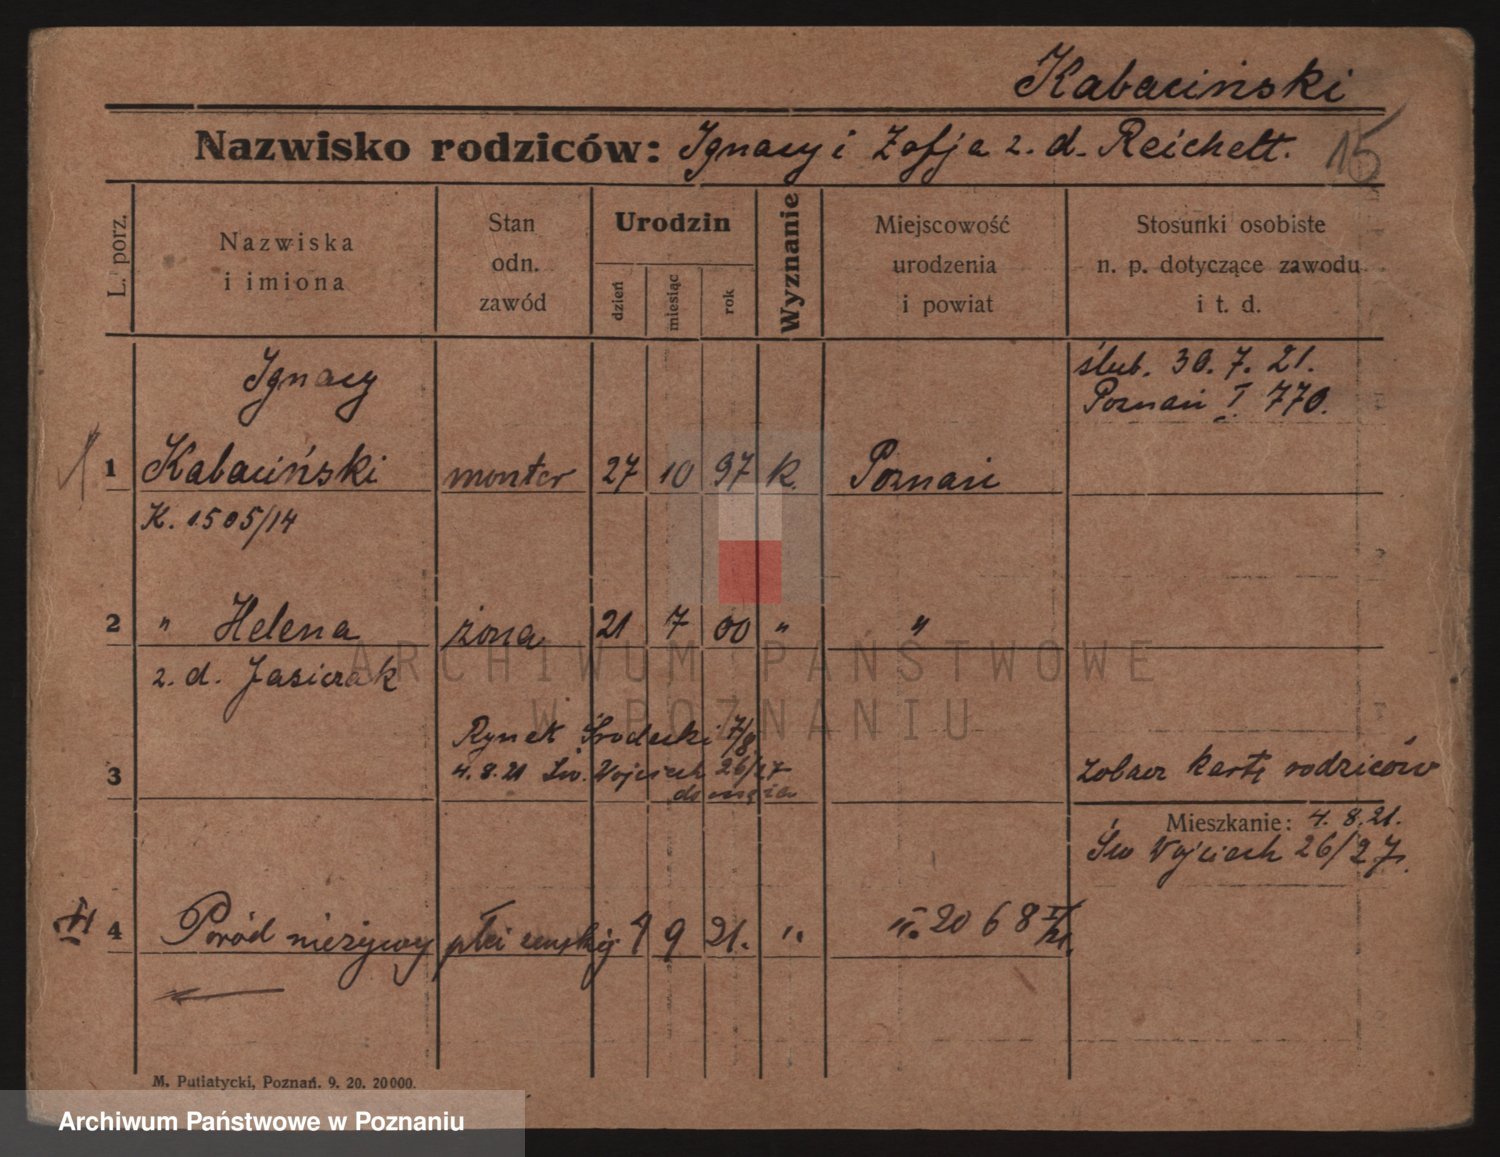 Kabaciński
Nazwisko rodziców: Ignacy i Zofja z. d. Reichelt.
15
L. porz.
Nazwiska
i imiona
Stan
odn.
zawód
Urodzin
dzień
miesiąc
rok
Wyznanie
Miejscowość
urodzenia
i powiat
Stosunki osobiste
n. p. dotyczące zawodu
i t. d.
ślub. 30. 7. 21.
Poznań I. 770.
Ignacy
1 Kabaciński monter 27 10 97 k. Poznań
K. 1505/14
2 " Helena żona 21 7 00 " "
z. d. Jasiczak
Rynek Śródecki 7/8
4. 8. 21 Św. Wojciech 26/27
do męża
3
zobacz kartę rodziców
Mieszkanie: 4. 8. 21.
Św Wojciech 26/27.
4 Poród nieżywy płci żeńskiej 4 9 21. "
2068
M. Putiatycki, Poznań. 9. 20. 20000.
ARCHIWUM PAŃSTWOWE
W POZNANIU
Archiwum Państwowe w Poznaniu